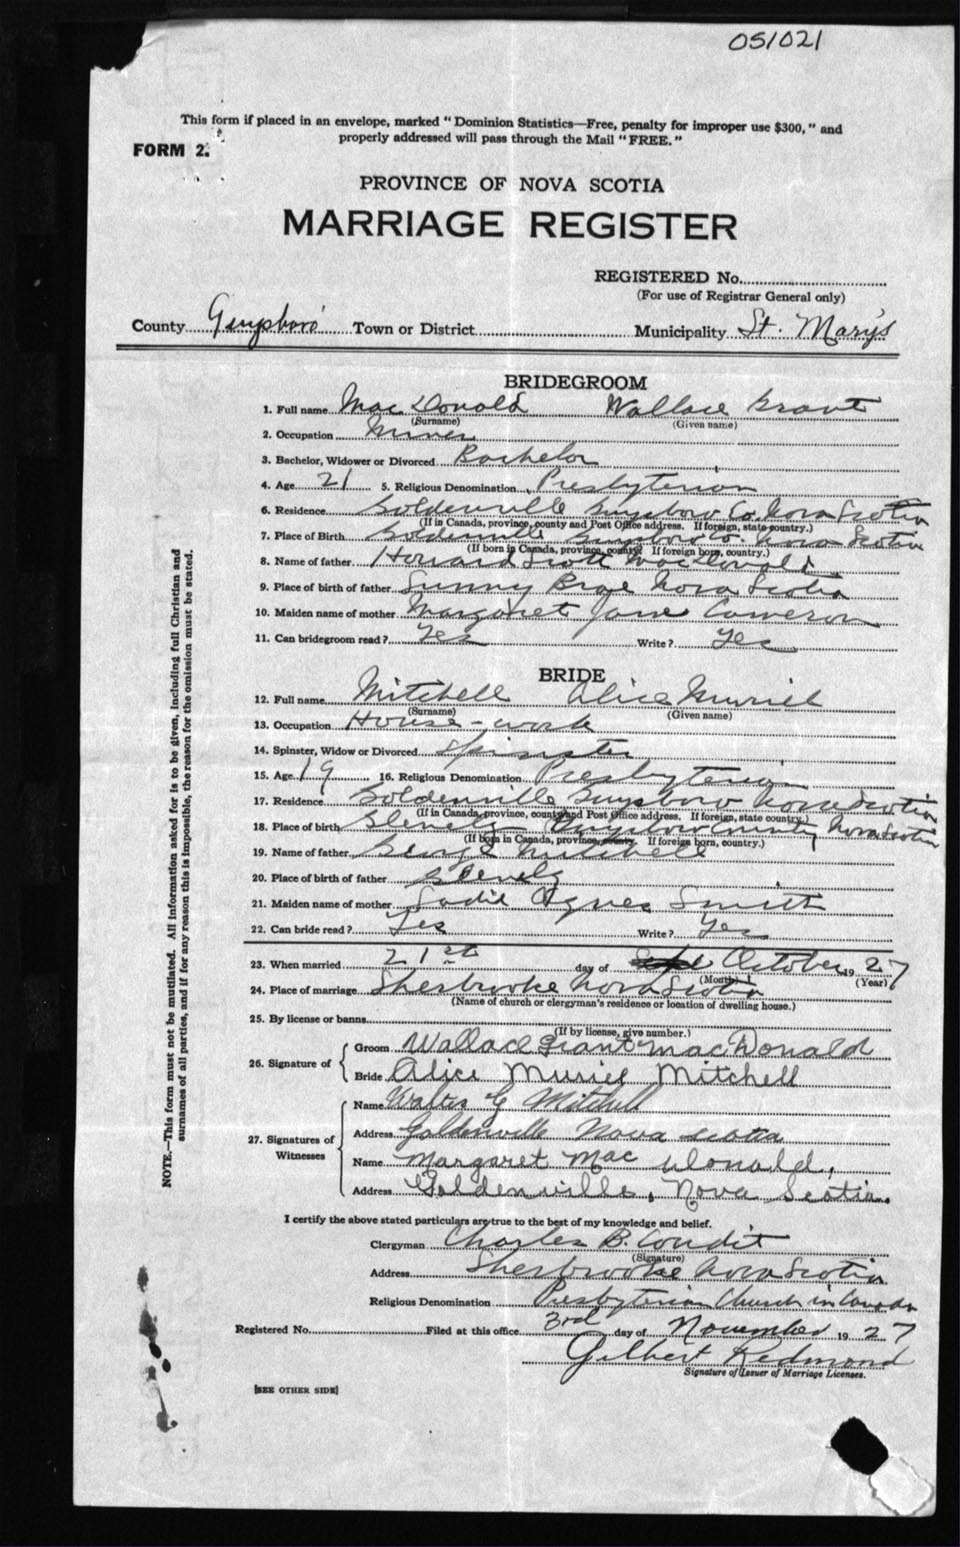 051021
This form if placed in an envelope, marked "Dominion Statistics—Free, penalty for improper use $300," and
properly addressed will pass through the Mail "FREE."
FORM 2.
PROVINCE OF NOVA SCOTIA
MARRIAGE REGISTER
REGISTERED No.
(For use of Registrar General only)
County Guysboro' Town or District Municipality St. Mary's
BRIDEGROOM
1. Full name MacDonald Wallace Grant
(Surname) (Given name)
2. Occupation Miner
3. Bachelor, Widower or Divorced Bachelor
4. Age 21 5. Religious Denomination Presbyterian
6. Residence Goldenville Guysboro Co. Nova Scotia
(If in Canada, province, county and Post Office address. If foreign, state country.)
7. Place of Birth Goldenville Guysboro Co. Nova Scotia
(If born in Canada, province, county. If foreign born, country.)
8. Name of father Howard Scott MacDonald
9. Place of birth of father Sunny Brae Nova Scotia
10. Maiden name of mother Margaret Jane Cameron
11. Can bridegroom read? Yes Write? Yes
BRIDE
12. Full name Mitchell Alice Muriel
(Surname) (Given name)
13. Occupation House-work
14. Spinster, Widow or Divorced Spinster
15. Age 19 16. Religious Denomination Presbyterian
17. Residence Goldenville Guysboro Nova Scotia
(If in Canada, province, county and Post Office address. If foreign, state country.)
18. Place of birth Glenelg Guysboro County Nova Scotia
(If born in Canada, province, county. If foreign born, country.)
19. Name of father George Mitchell
20. Place of birth of father Glenelg
21. Maiden name of mother Sadie Agnes Smith
22. Can bride read? Yes Write? Yes
23. When married 21st day of October 1927
(Month) (Year)
24. Place of marriage Sherbrooke Nova Scotia
(Name of church or clergyman's residence or location of dwelling house.)
25. By license or banns
(If by license, give number.)
26. Signature of Groom Wallace Grant MacDonald
Bride Alice Muriel Mitchell
27. Signatures of Witnesses
Name Walter G Mitchell
Address Goldenville Nova Scotia
Name Margaret Mac Donald,
Address Goldenville, Nova Scotia.
I certify the above stated particulars are true to the best of my knowledge and belief.
Clergyman Charles B. Condit
(Signature)
Address Sherbrooke Nova Scotia
Religious Denomination Presbyterian Church in Canada
Registered No. Filed at this office 3rd day of November 1927
Gilbert Redmond
Signature of Issuer of Marriage Licenses.
[SEE OTHER SIDE]
NOTE.—This form must not be mutilated. All information asked for is to be given, including full Christian and
surnames of all parties, and if for any reason this is impossible, the reason for the omission must be stated.